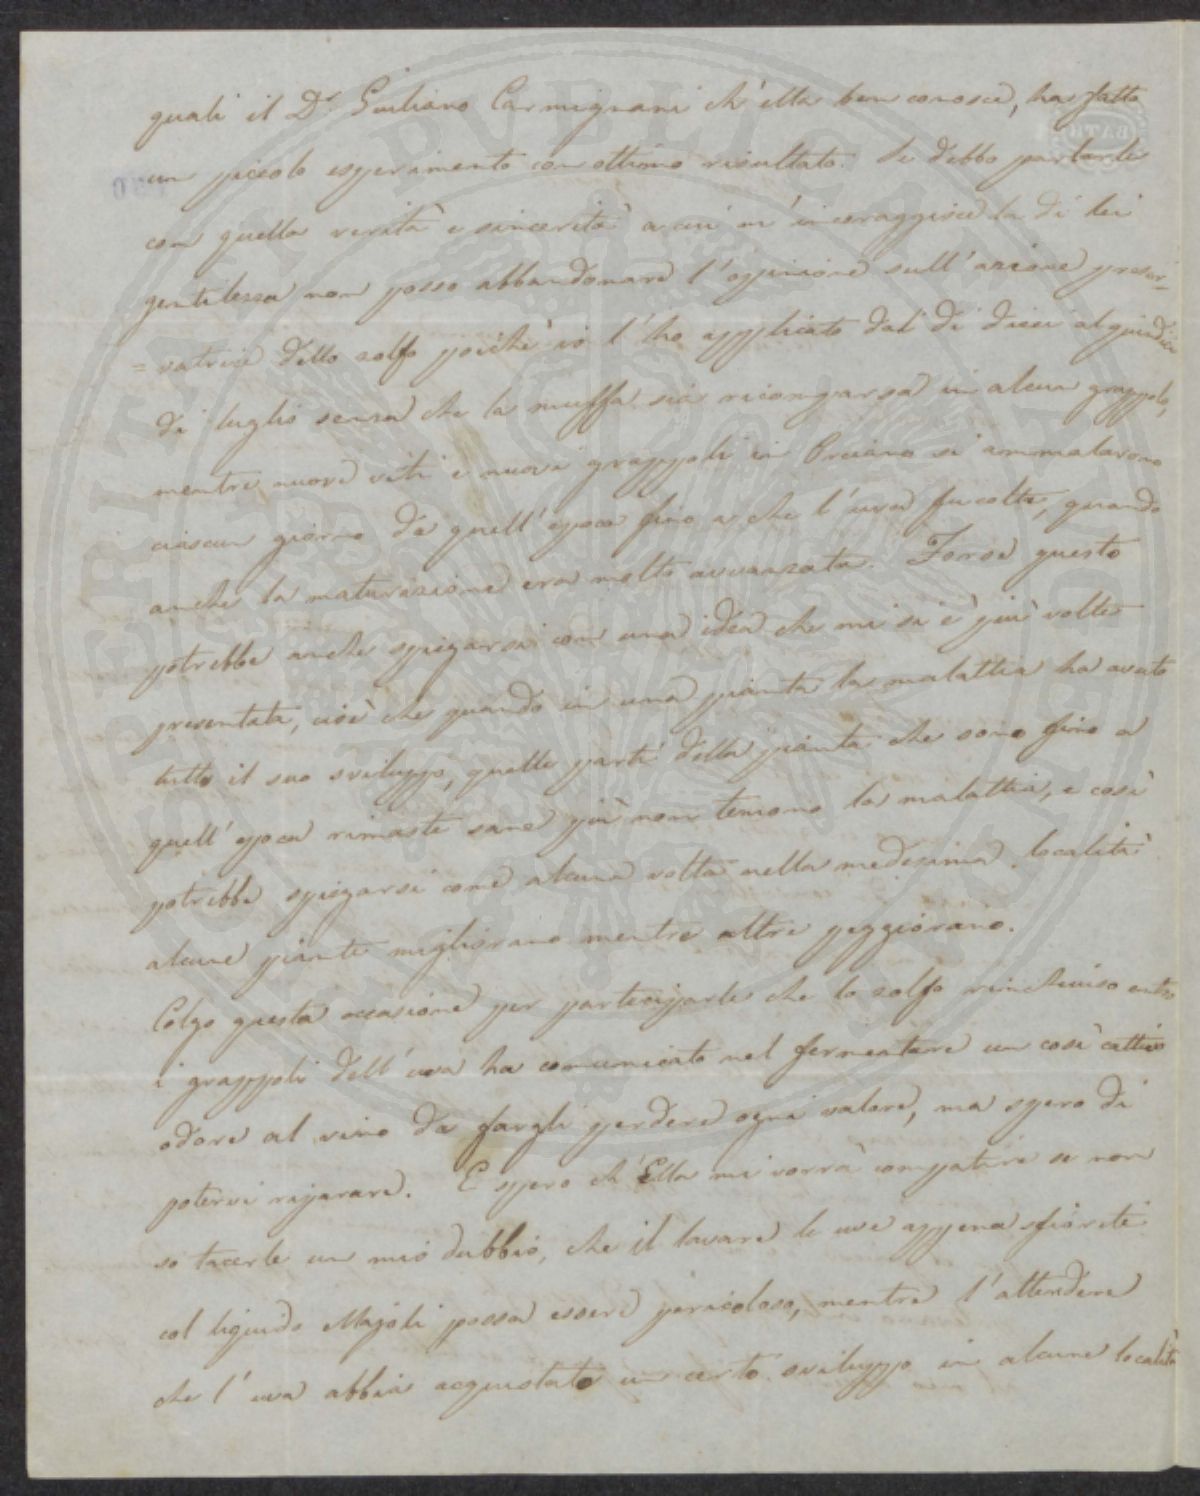 quali il Dr. Giuliano Carmignani ch'ella ben conosce, ha fatto
un piccolo esperimento con ottimo risultato. Se debbo parlarle
con quella verità e sincerità a cui m'incoraggisce la di lei
gentilezza non posso abbandonare l'opinione sull'azione preser-
=vatrice dello zolfo poichè io l'ho applicato dal dì dieci al quindici
di luglio senza che la muffa sia ricomparsa in alcun grappolo,
mentre nuove viti e nuovi grappoli in Orciano si ammalarono
ciascun giorno da quell'epoca fino a che l'uva fu colta, quando
anche la maturazione era molto avvanzata. Forse questo
potrebbe anche spiegarsi con una idea che mi si è più volte
presentata, cioè che quando in una pianta la malattia ha avuto
tutto il suo sviluppo, quelle parti della pianta che sono fino a
quell'epoca rimaste sane più non temono la malattia, e così
potrebbe spiegarsi come alcuna volta nella medesima località
alcune piante migliorano mentre altre peggiorano.
Colgo questa occasione per parteciparle che lo zolfo rinchiuso entro
i grappoli dell'uva ha comunicato nel fermentare un così cattivo
odore al vino da fargli perdere ogni valore, ma spero di
potervi riparare. E spero ch'Ella mi vorrà compatire se non
so tacerle un mio dubbio, che il lavare le uve appena sfiorite
col liquido Majoli possa essere pericoloso, mentre l'attendere
che l'uva abbia acquistato un certo sviluppo in alcune località
PVBLICAE